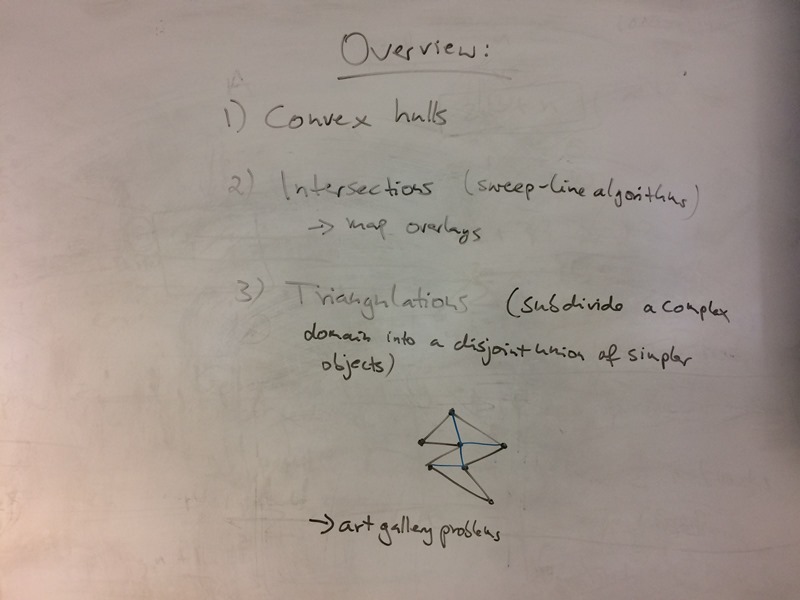 Overview:
1) Convex hulls
2) Intersections (sweep-line algorithms)
→ map overlays
3) Triangulations (subdivide a complex
domain into a disjoint union of simpler
objects)
→ art gallery problems